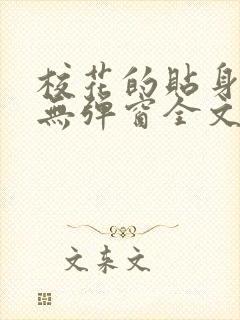 校花的貼身
無弹窗全文
文来文